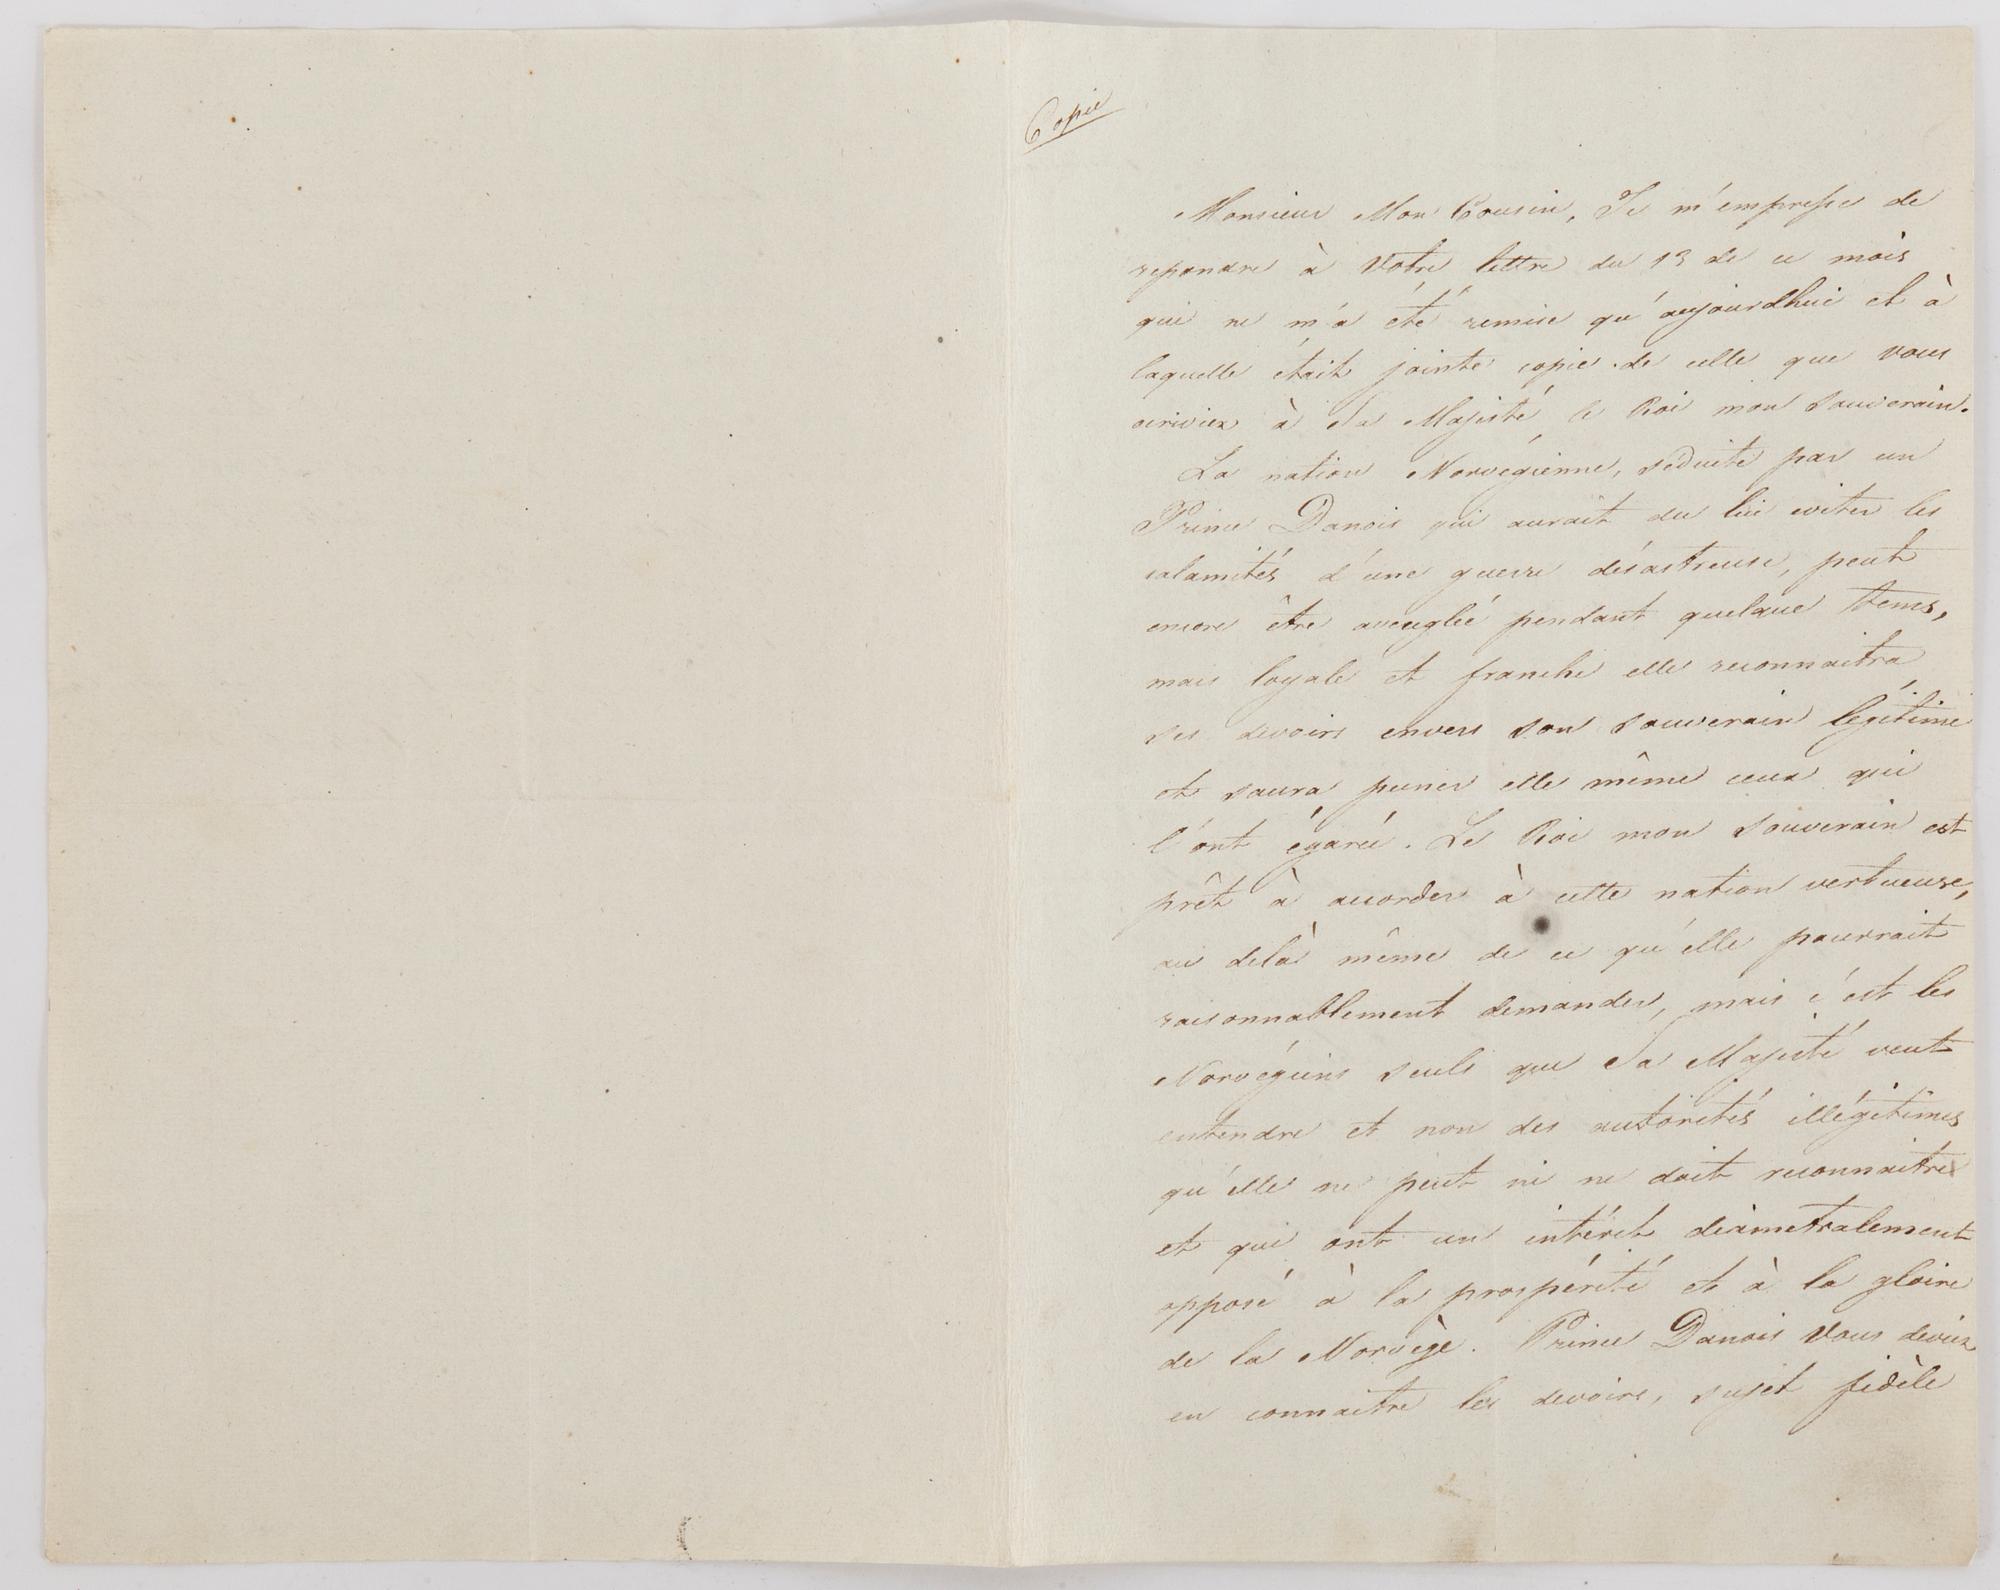 Copie
Monsieur Mon Cousin, Je m'empresse de
repondre à Votre lettre du 13 de ce mois
qui ne m'a été remise qu'aujourdhui et à
laquelle était jointe copie de celle que vous
ecriviez à Sa Majesté le Roi mon Souverain.
La nation Norvegienne, séduite par un
Prince Danois qui aurait du lui eviter les
calamités d'une guerre désastreuse, peut
encore être aveuglée pendant quelque tems,
mais loyale et franche elle reconnaitra
ses devoirs envers son Souverain légitime
et saura punir elle même ceux qui
l'ont égarée. Le Roi mon Souverain est
prêt à accorder à cette nation vertueuse,
au delà même de ce qu'elle pourrait
raisonnablement demander, mais c'est les
Norvégiens seuls que Sa Majesté veut
entendre et non des autorités illégitimes
qu'elle ne peut ni ne doit reconnaitre
et qui ont un intérêt diametralement
opposé à la prospérité et à la gloire
de la Norvège. Prince Danois Vous deviez
en connaitre les devoirs, sujet fidèle